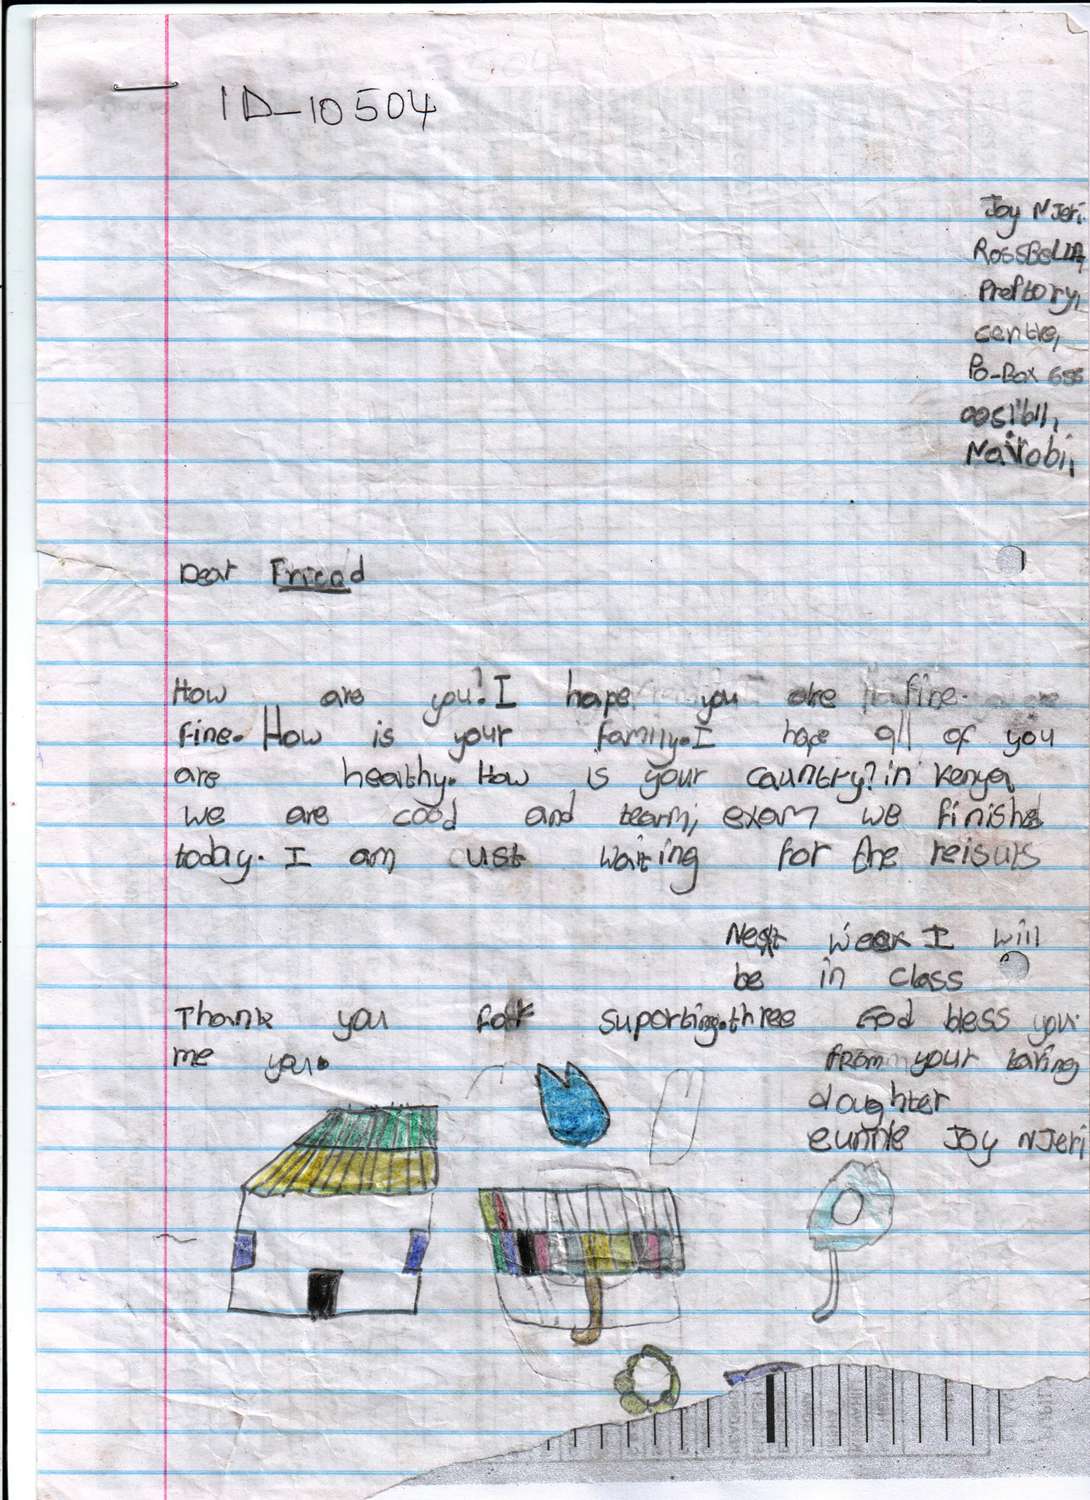 ID-10504
Joy NJeri.
RossBeLLA,
Preftory,
centre,
Po-Box 656
oosibll,
Nairobi,
Dear Friend
How are you? I hape you are fine.
Fine. How is your family. I hope all of you
are healthy. How is your cauntry? in kenya
we are cood and team, exam we finished
today. I am ust waiting for the reisurs
Next week I will
be in class
Thank you for suporting. three God bless you.
me you.
from your loving
daughter
eunne Joy NJeri